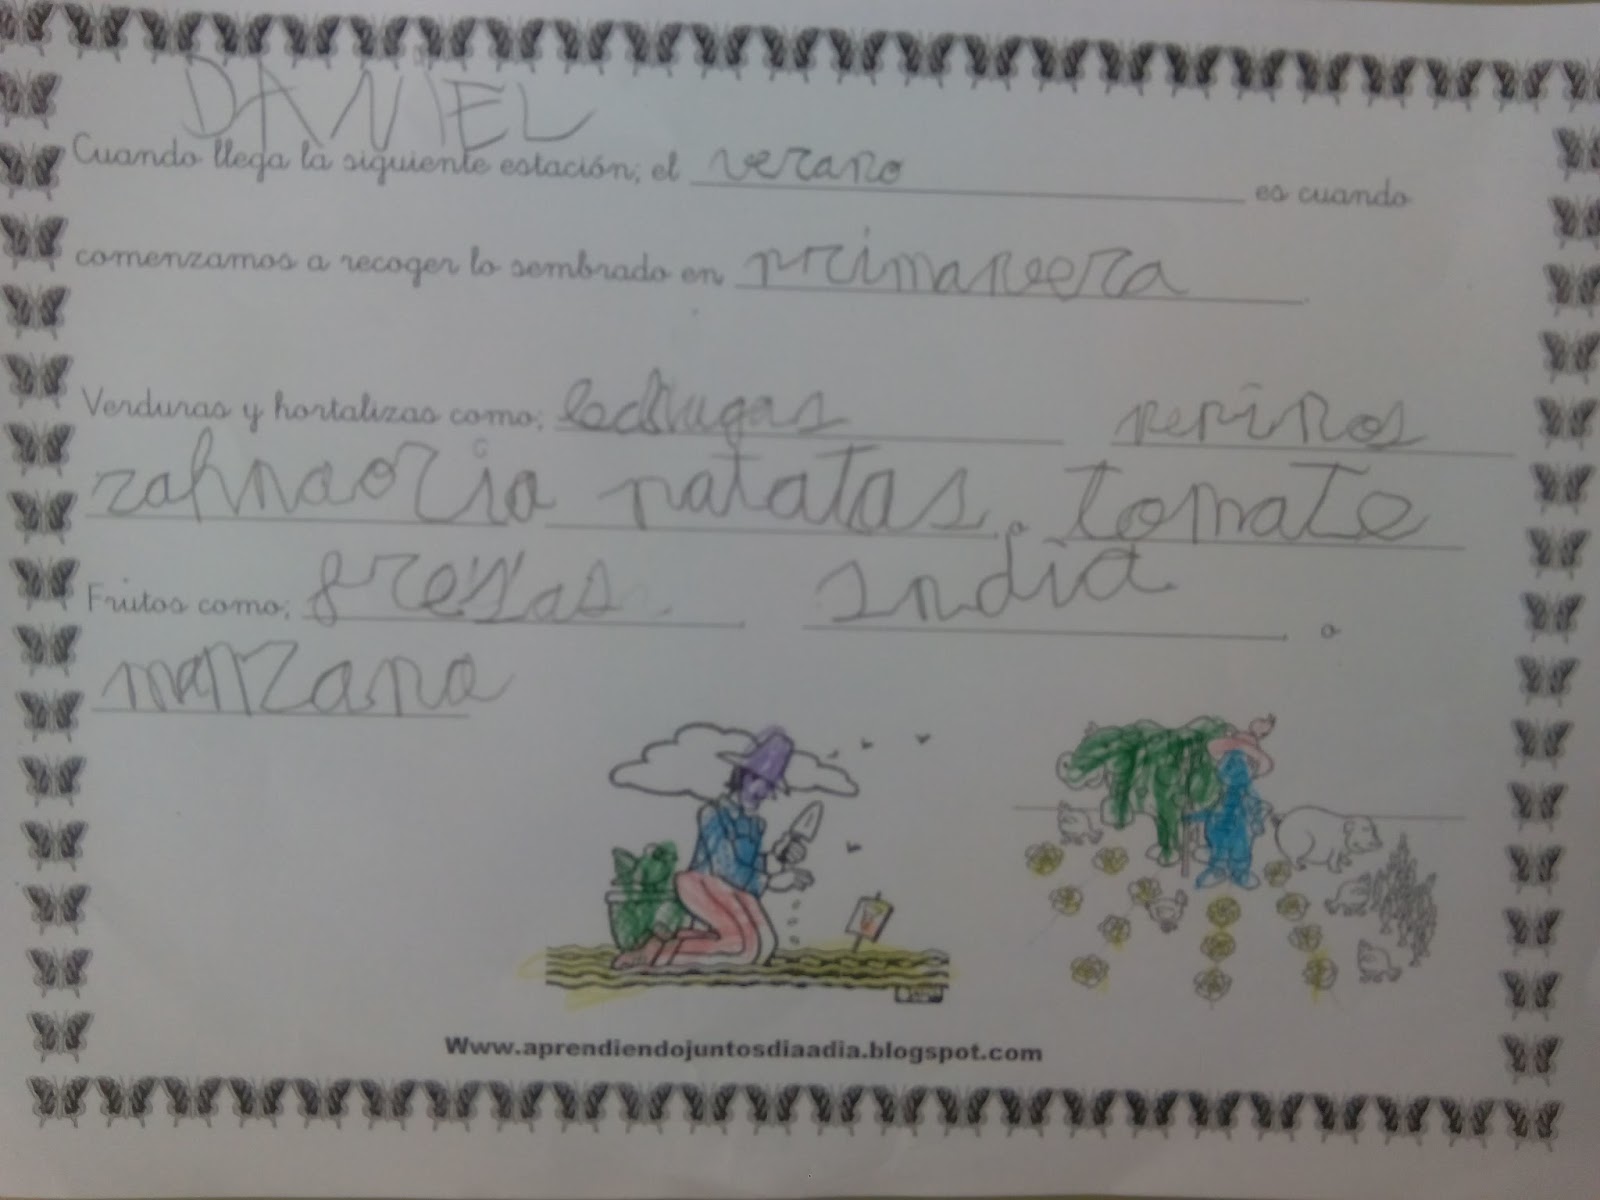 DANIEL
Cuando llega la siguiente estación; el verano es cuando
comenzamos a recoger lo sembrado en primavera
Verduras y hortalizas como; pepinos
patatas o tomate
Frutos como; fresas sndia o
manzana
Www.aprendiendojuntosdiaadia.blogspot.com